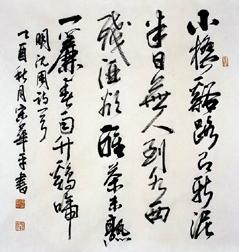 小橋谿路有新泥
半日無人到水西
殘酒欲醒茶未熟
一簾春雨竹鷄啼
明沈周詩一首
乙酉秋月宋華平書